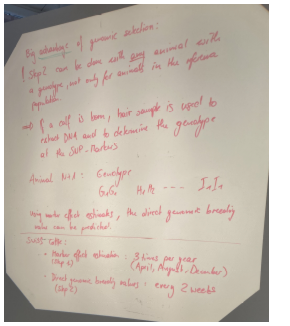 Big advantage of genomic selection:
Step 2 can be done with any animal with
a genotype, not only for animals in the reference
population.
If a calf is born, hair sample is used to
extract DNA and to determine the genotype
at the SNP-Markers
Animal N+1: Genotype
Using marker effect estimates, the direct genomic breeding
value can be predicted.
Cattle:
• Marker effect estimation: 3 times per year
(Step 1) (April, August, December)
• Direct genomic breeding values: every 2 weeks
(Step 2)